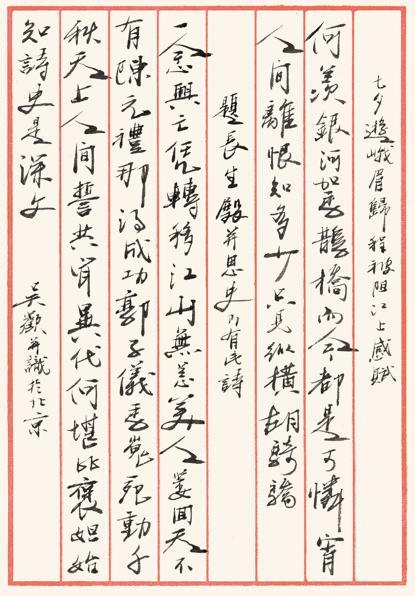 七夕遊峨眉歸程被阻江上感賦
何羨銀河駕鵲橋而今都是可憐宵
人間離恨知多少只見縱橫胡騎驕
題長生殿并思史乃有此詩
一念興亡凭轉移江山無恙美人萎回天不
有陳元禮那得成功郭子儀動千
秋天上人間誓共異代何堪比褒妲始
知詩史是深文
吳歡并識於北京